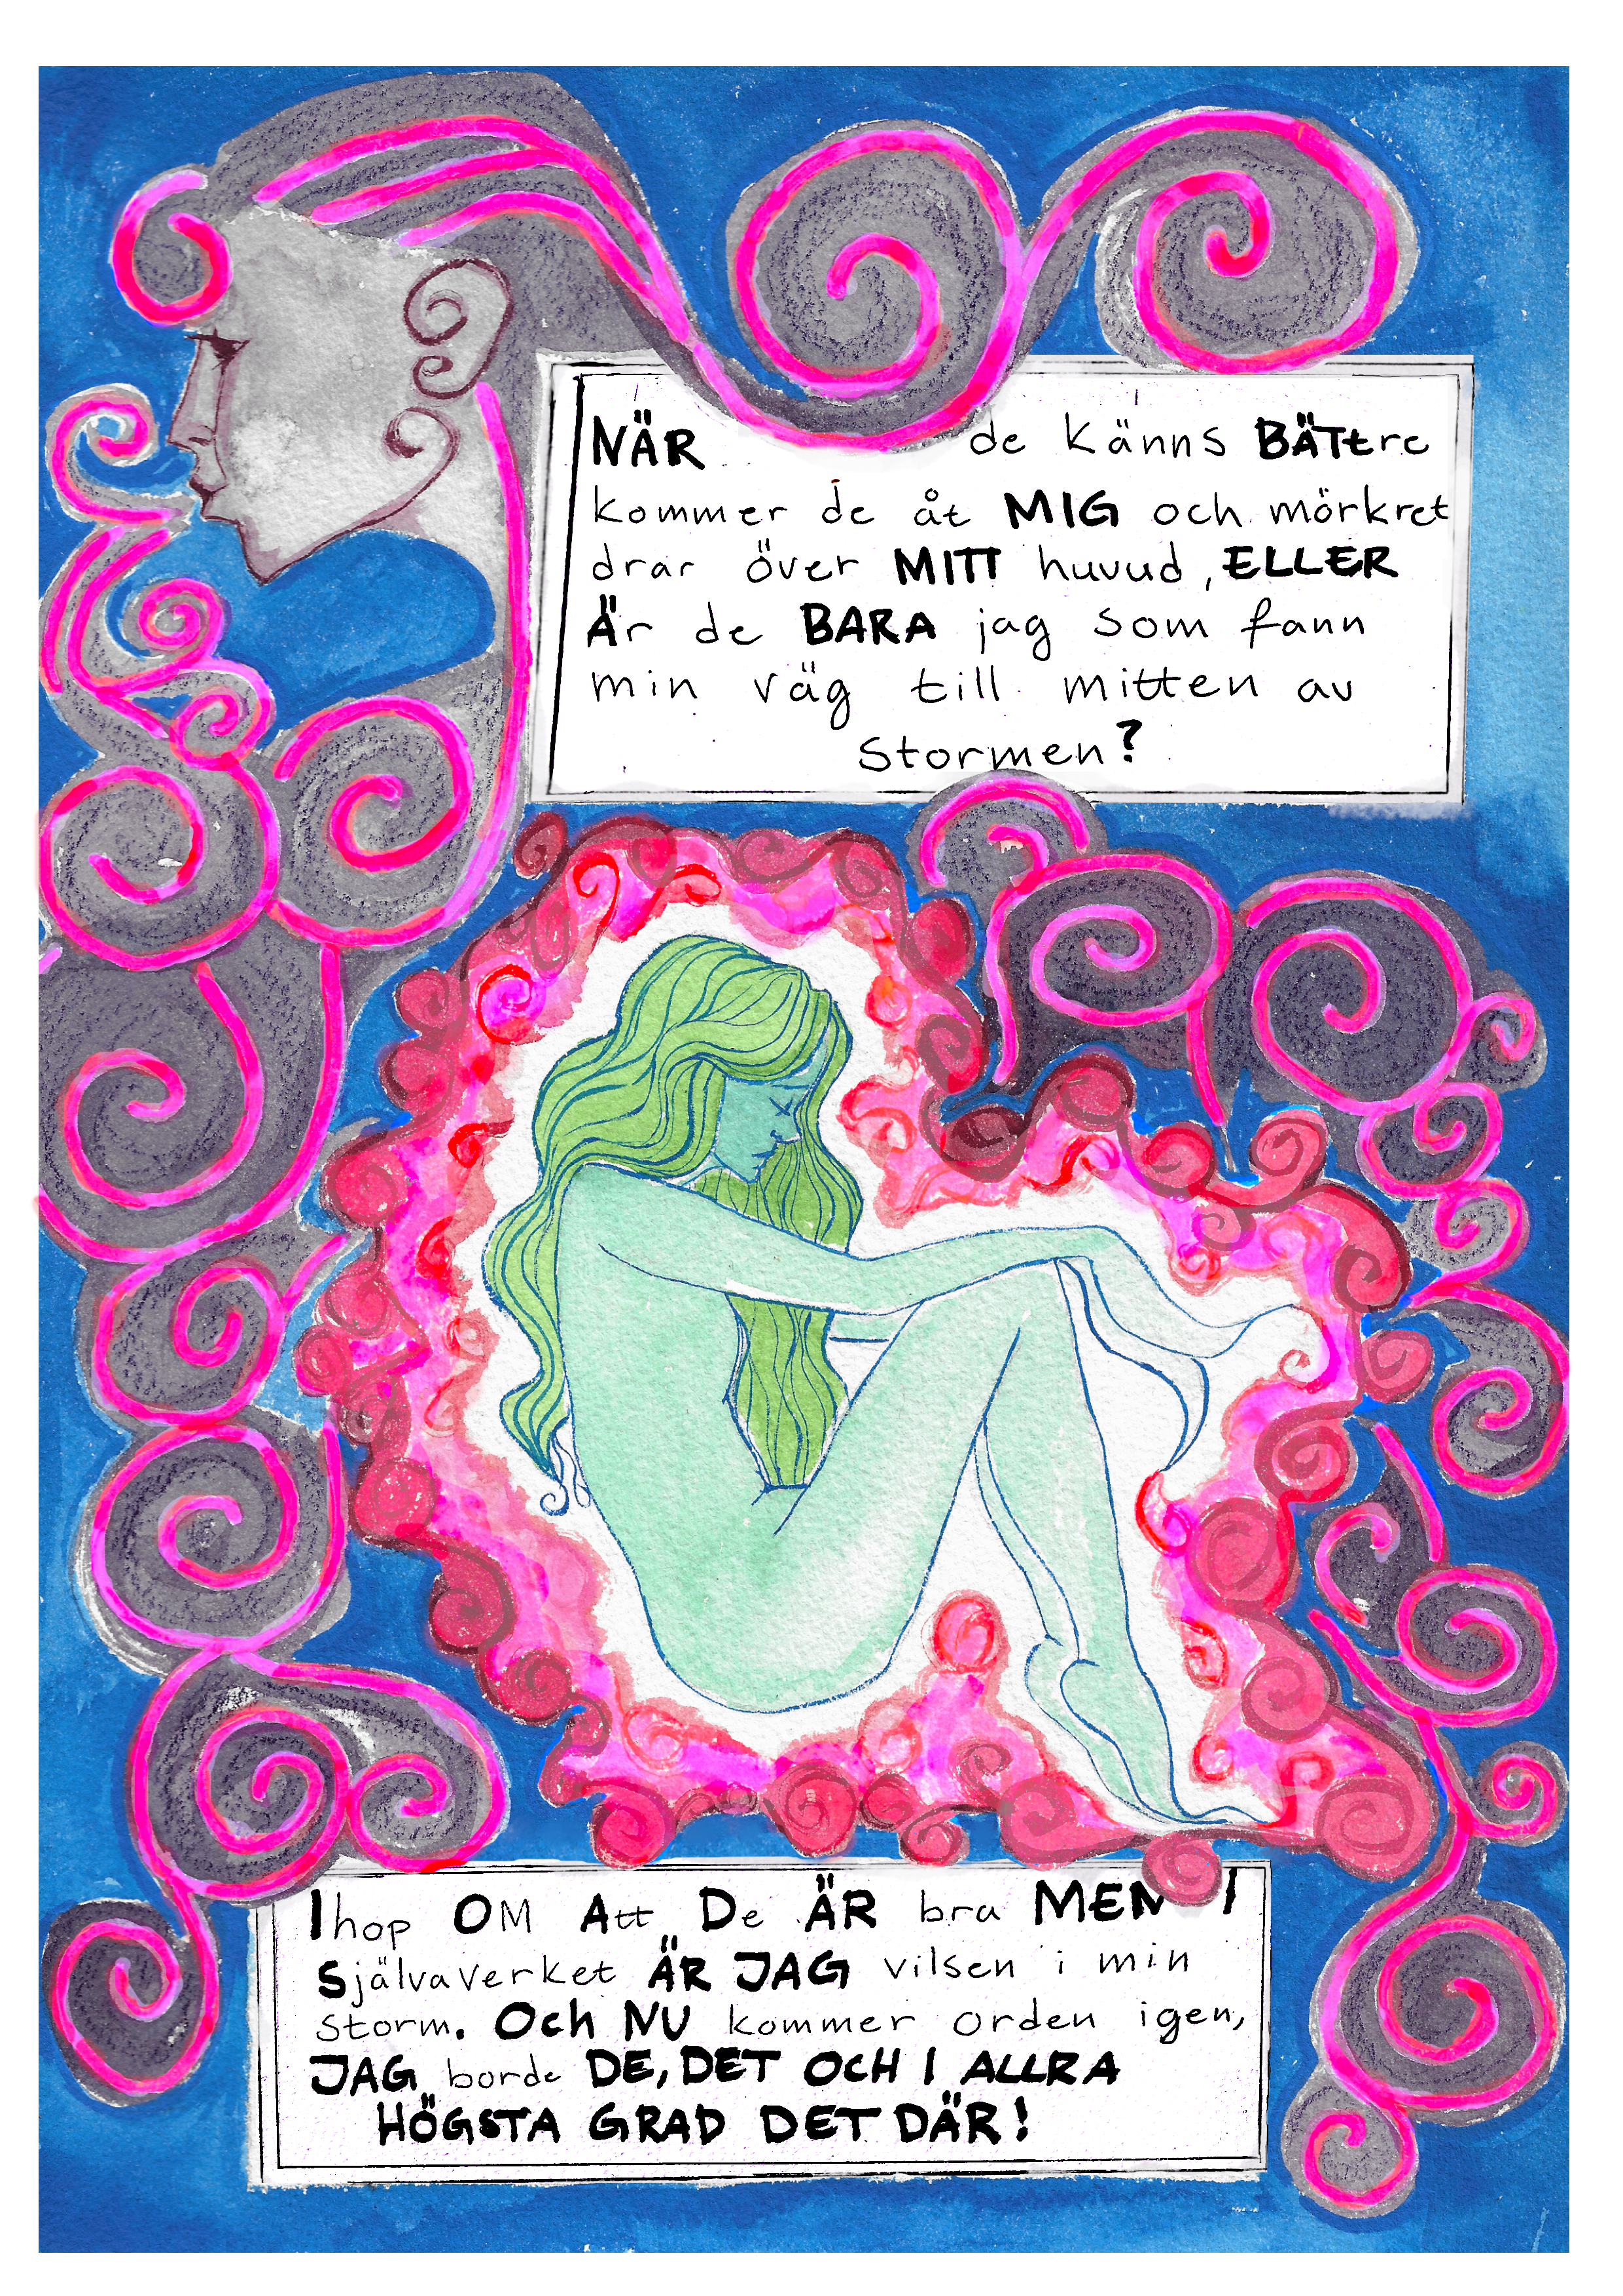 NÄR de känns BÄTtre
kommer de åt MIG och mörkret
drar över MITT huvud, ELLER
Är de BARA jag som fann
min väg till mitten av
stormen?
Ihop OM Att De ÄR bra MEN I
Självaverket ÄR JAG vilsen i min
storm. Och NU kommer orden igen,
JAG borde DE, DET OCH I ALLRA
HÖGSTA GRAD DET DÄR!